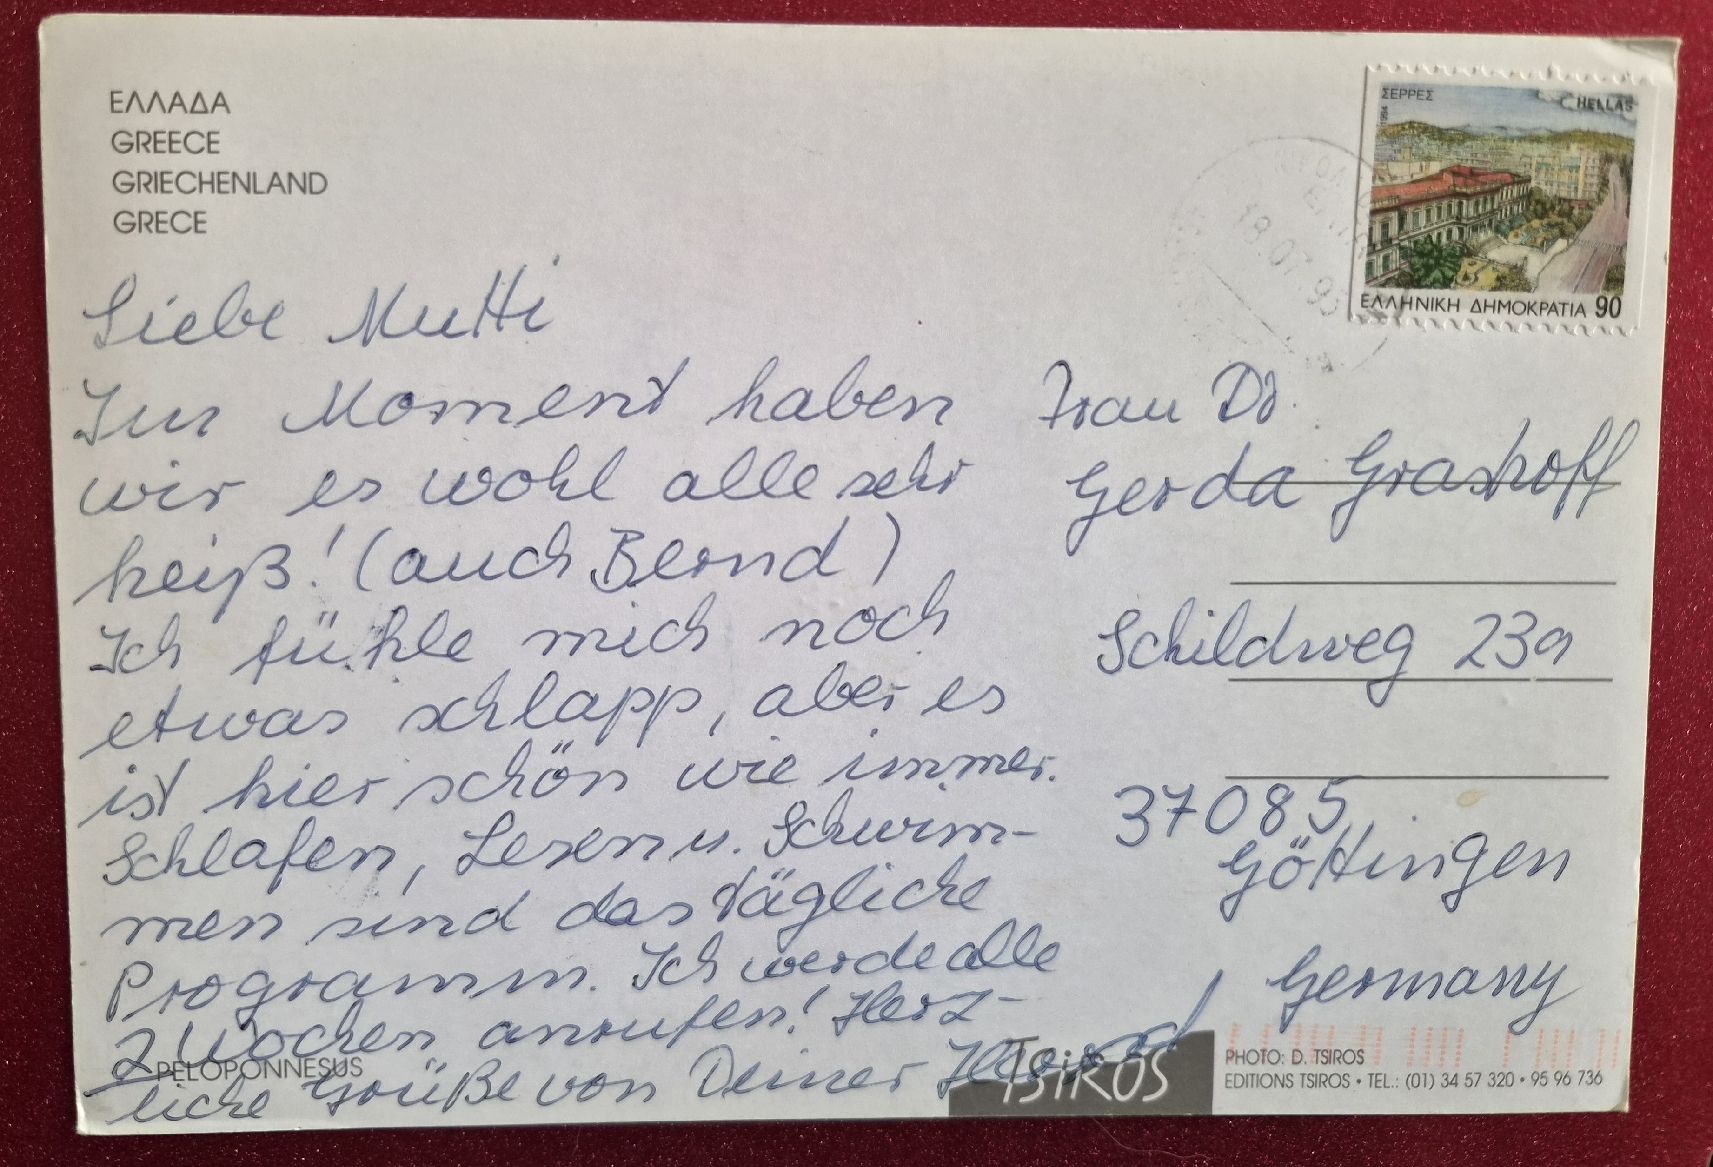 ΕΛΛΑΔΑ
GREECE
GRIECHENLAND
GRECE
Liebe Mutti
Im Moment haben
wir es wohl alle sehr
heiß! (auch Bernd)
Ich fühle mich noch
etwas schlapp, aber es
ist hier schön wie immer.
Schlafen, Lesen u. Schwim-
men sind das tägliche
Programm. Ich werde alle
2 Wochen anrufen! Herz-
liche Grüße von Deiner
PELOPONNESUS
ΣΕΡΡΕΣ
HELLAS
1994
ΕΛΛΗΝΙΚΗ ΔΗΜΟΚΡΑΤΙΑ 90
18.07.95
Frau Dr.
Gerda Grashoff
Schildweg 23a
37085
Göttingen
Germany
TSIROS
PHOTO: D. TSIROS
EDITIONS TSIROS • TEL.: (01) 34 57 320 • 95 96 736